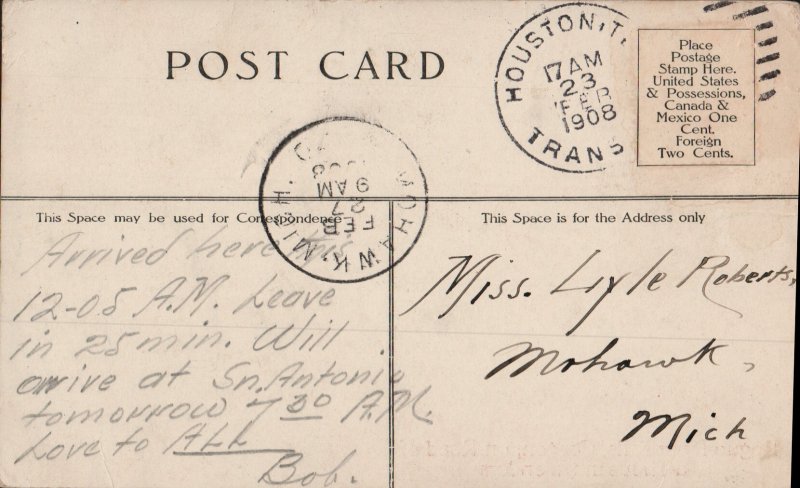 POST CARD
HOUSTON, T.
17 AM
23
FEB
1908
TRANS
Place
Postage
Stamp Here.
United States
& Possessions,
Canada &
Mexico One
Cent.
Foreign
Two Cents.
MOHAWK, MICH.
FEB
27
9 AM
This Space may be used for Correspondence
This Space is for the Address only
Arrived here this
12-05 A.M. Leave
in 25 min. Will
arrive at Sn. Antonio
tomorrow 7 30 A.M.
Love to ALL
Bob.
Miss. Lyle Roberts,
Mohawk,
Mich